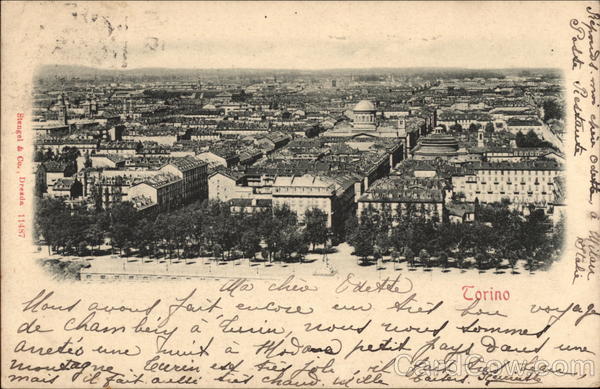 Ma chère Odette
Torino
Nous avons fait encore un très bon voyage
de Chambéry à Turin, nous nous sommes
arrêtés une nuit à Modane petit pays dans une
montagne Turin est très joli
mais il fait aussi très chaud. Mille
Réponds-moi chère Odette à Milan
Poste Restante d'Italie
Stengel & Co., Dresda 11487
CardCow.com